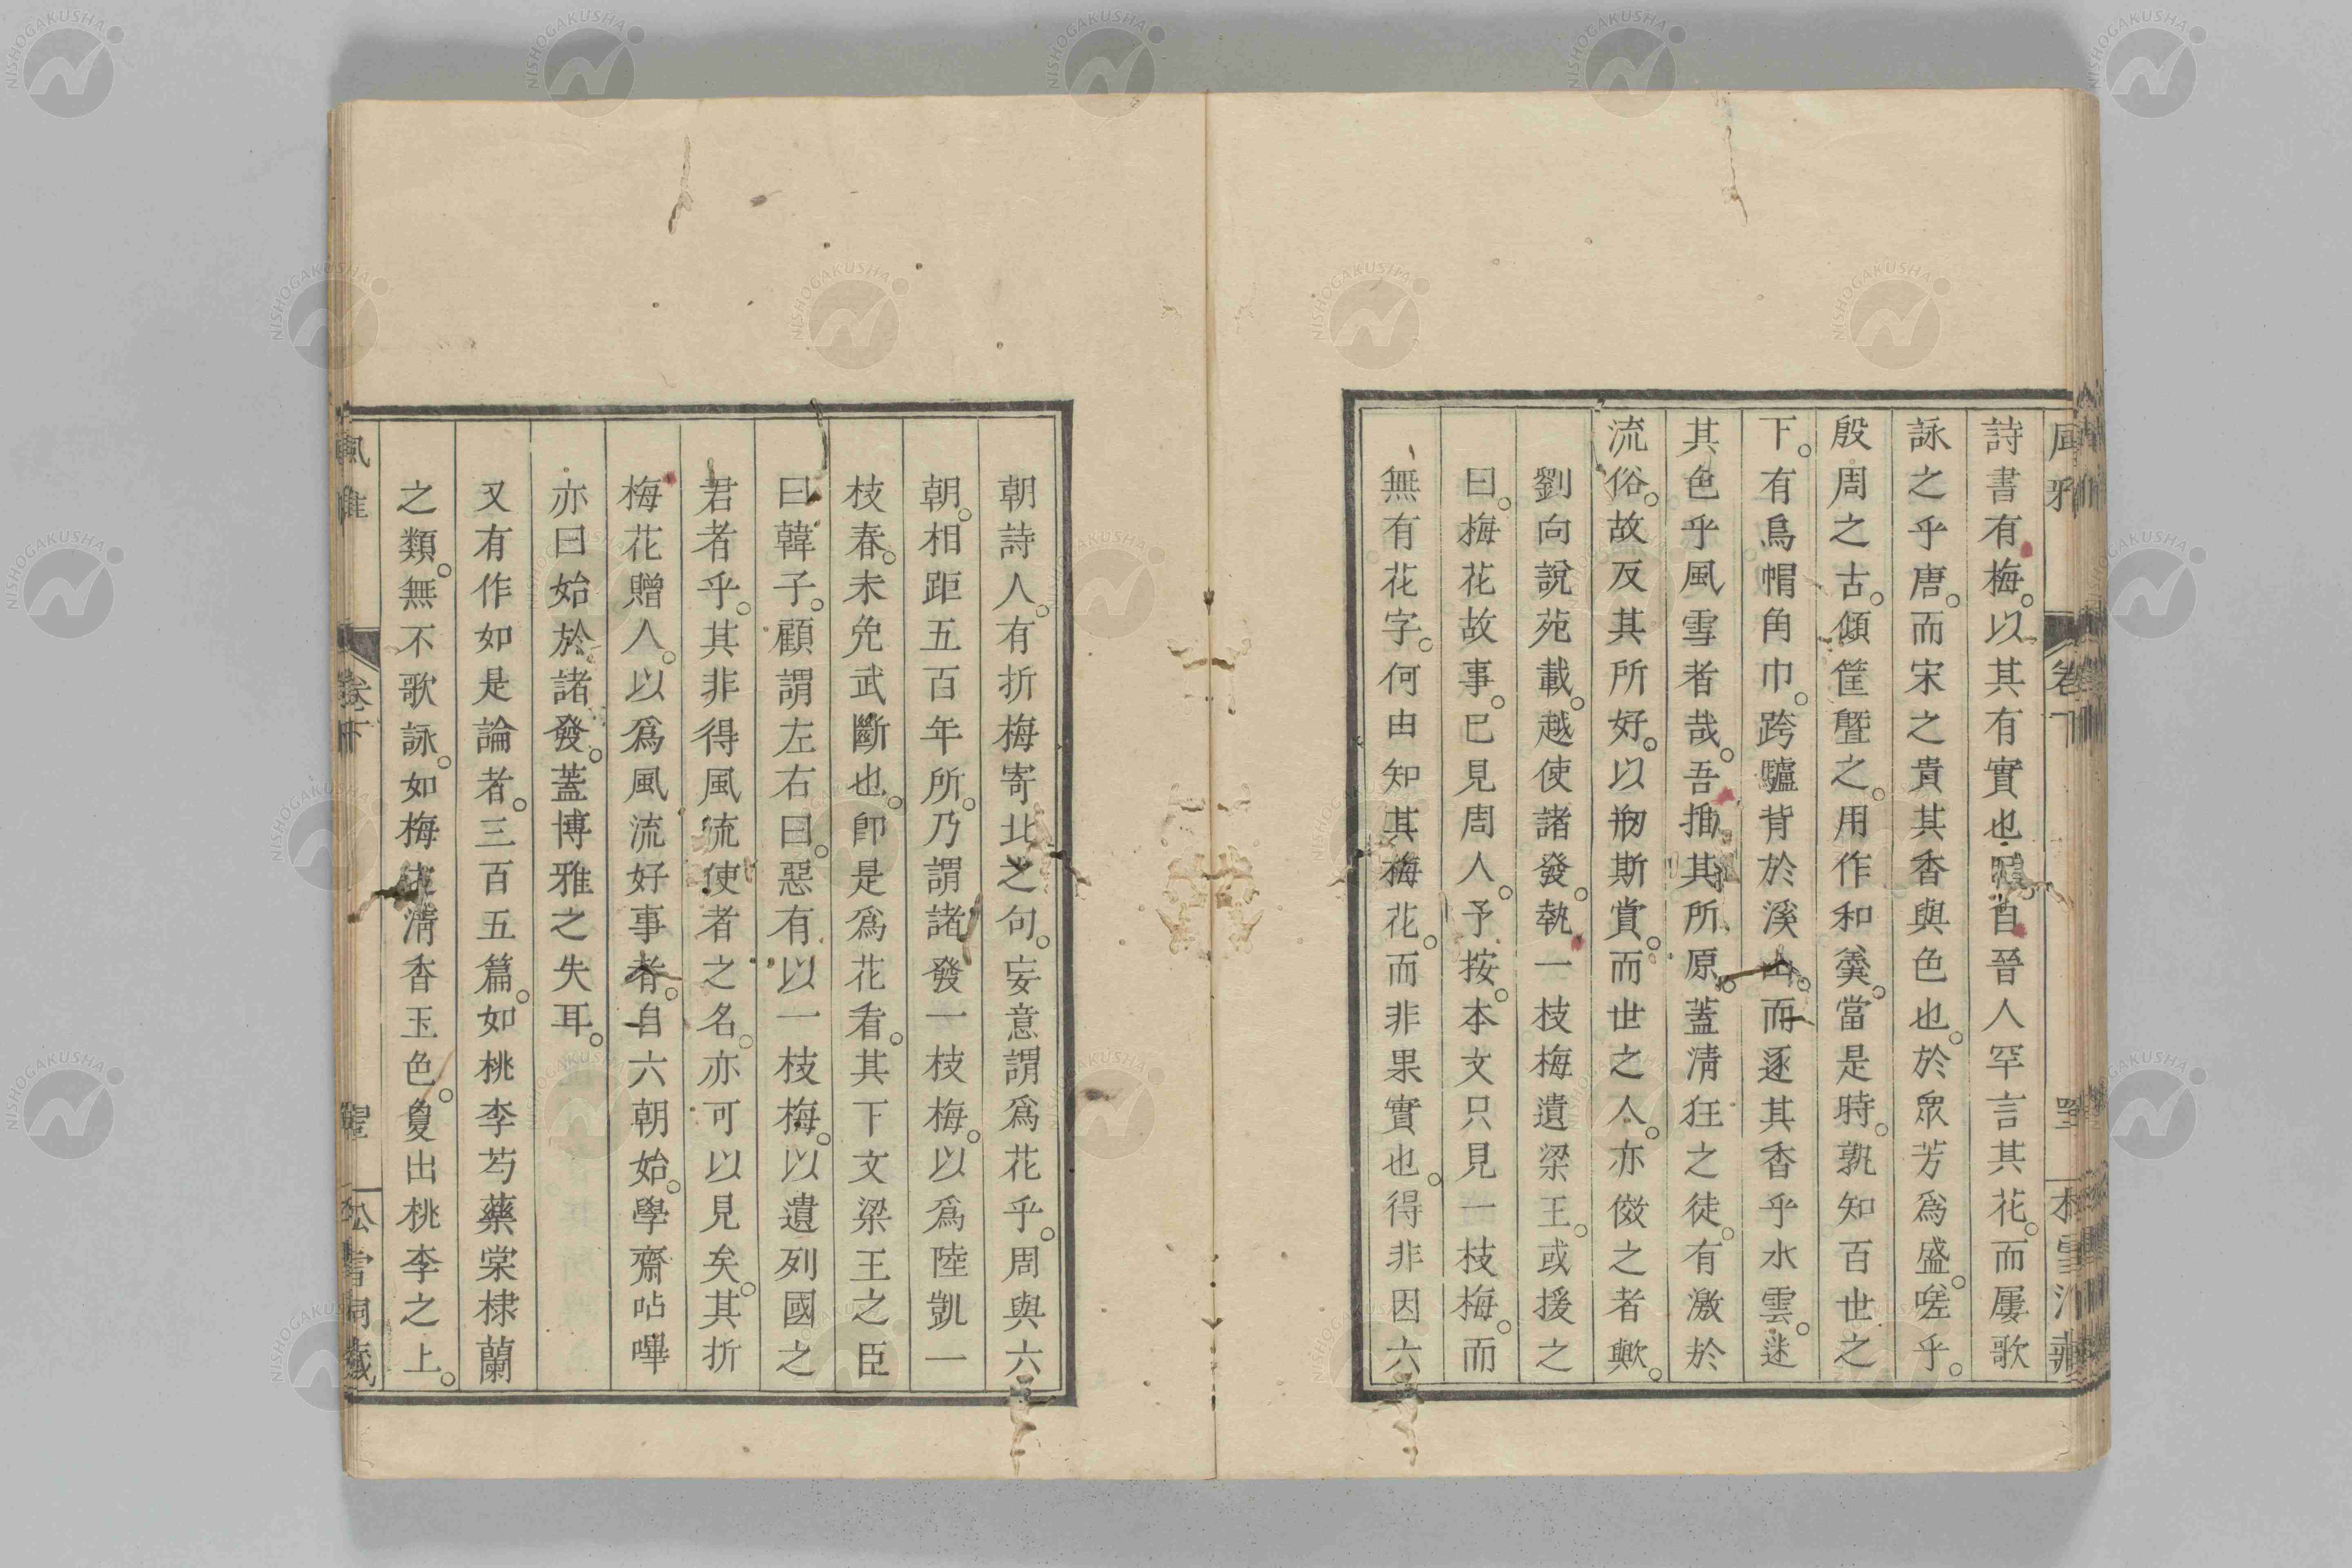 詩書有梅。以其有實也。自晉人罕言其花。而屢歌
詠之乎唐。而宋之貴其香與色也。於眾芳爲盛。嗟乎。
殷周之古。傾筐墍之。用作和羹。當是時。孰知百世之
下。有烏帽角巾。跨驢背於溪山。而逐其香乎水雲。迷
其色乎風雪者哉。吾揣其所原。蓋清狂之徒。有激於
流俗。故反其所好。以刱斯賞。而世之人。亦傚之者歟。
劉向說苑載。越使諸發。執一枝梅遺梁王。或援之
曰。梅花故事。已見周人。予按。本文只見一枝梅。而
無有花字。何由知其梅花。而非果實也。得非因六
朝詩人。有折梅寄北之句。妄意謂爲花乎。周與六
朝。相距五百年所。乃謂諸發一枝梅。以爲陸凱一
枝春。未免武斷也。卽是爲花看。其下文梁王之臣
曰韓子。顧謂左右曰。惡有以一枝梅。以遺列國之
君者乎。其非得風流使者之名。亦可以見矣。其折
梅花贈人。以爲風流好事者。自六朝始。學齋呫嗶
亦曰始於諸發。蓋博雅之失耳。
又有作如是論者。三百五篇。如桃李芍藥棠棣蘭
之類。無不歌詠。如梅清香玉色。敻出桃李之上。